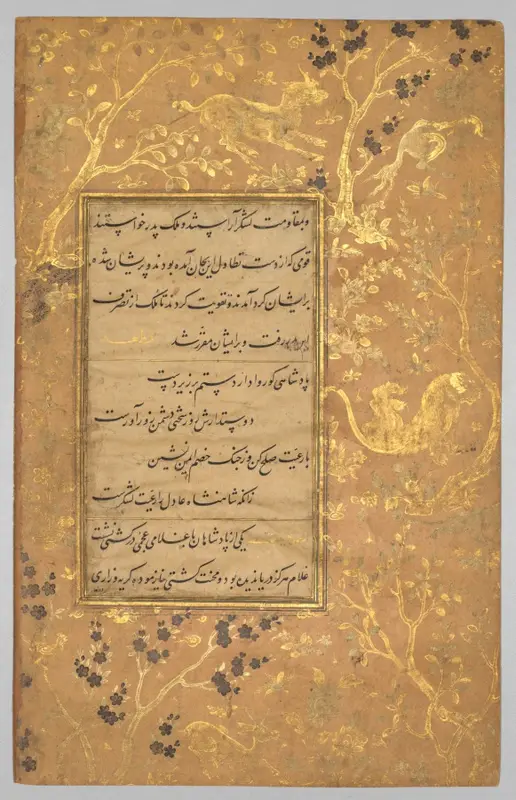 و بمقاومت لشکر آراسته شد و ملک پدر خواستند
قومی که از دست تطاول این بجان آمده بودند و پریشان شده
بر ایشان گرد آمدند و تقویت کردند تا ملک از تصرف
این بدر رفت و بر ایشان مقرر شد
پادشاهی کو روا دارد ستم بر زیر دست
دوستدارش روز سختی دشمن زورآورست
با رعیت صلح کن وز جنک خصم ایمن نشین
زانکه شاهنشاه عادل را رعیت لشکرست
یکی از پادشاهان با غلامی عجمی در کشتی نشست
غلام هرکز دریا ندیده بود و محنت کشتی نیازموده کریه و زاری